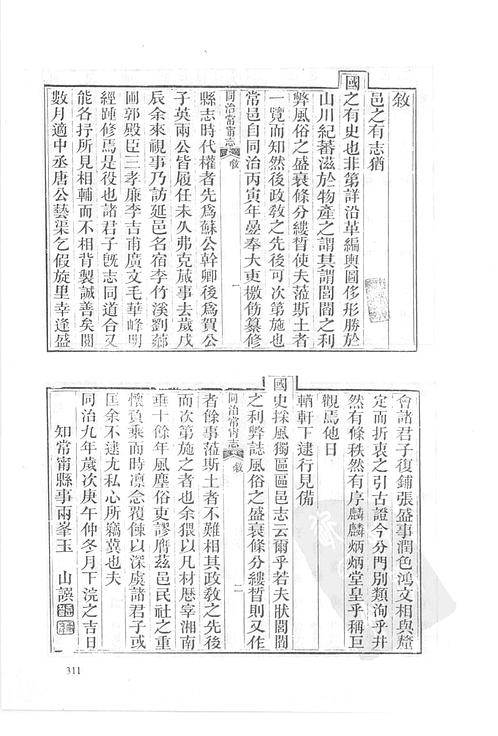 敘
邑之有志猶
國之有史也非第詳沿革編輿圖侈形勝於
山川紀蕃滋於物產之謂其謂閭閻之利
弊風俗之盛衰條分縷晳使夫蒞斯土者
一覽而知然後政敎之先後可次第施也
常邑自同治丙寅年曇奉大吏檄飭纂修
同治常甯志 敘 一
縣志時代權者先爲蘇公幹卿後爲賀公
子英兩公皆履任未久弗克蕆事去歲戊
辰余來視事乃訪延邑名宿李竹溪劉藜
圃郭殿臣三孝廉李吉甫廣文毛華峰明
經踵修焉是役也諸君子旣志同道合又
能各抒所見相輔而不相背製誠善矣閱
數月適中丞唐公藝渠乞假旋里幸逢盛
會諸君子復鋪張盛事潤色鴻文相與釐
定而折衷之引古證今分門別類洵乎井
然有條秩然有序麟麟炳炳堂皇乎稱巨
觀焉他日
輶軒下逮行見備
國史採風獨區區邑志云爾乎若夫狀閭閻
之利弊誌風俗之盛衰條分縷晳則又作
同治常甯志 敘 二
者餘事蒞斯土者不難相其政敎之先後
而次第施之者也余猥以凡材歷宰湘南
垂十餘年風塵俗吏謬膺茲邑民社之重
懷負乘而時凜念覆餗以深虞諸君子或
匡余不逮尤私心所竊冀也夫
同治九年歲次庚午仲冬月下浣之吉日
知常甯縣事兩峯玉 山譔
311